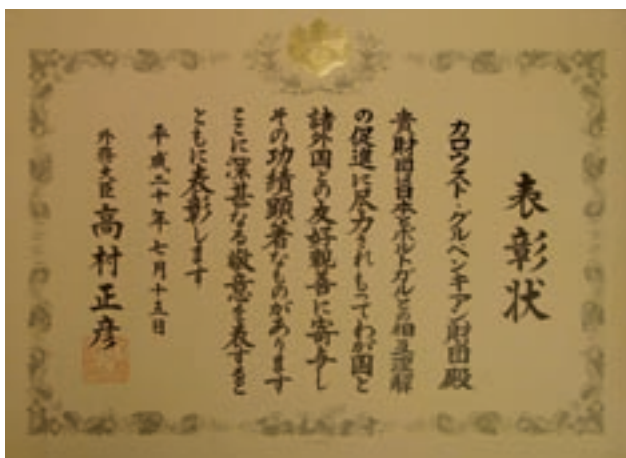 表彰状
カロウスト・グルベンキアン財団殿
貴財団は日本とポルトガルとの相互理解
の促進に尽力されもってわが国と
諸外国との友好親善に寄与し
その功績顕著なものがあります
ここに深甚なる敬意を表すると
ともに表彰します
平成二十年七月十五日
外務大臣 高村正彦